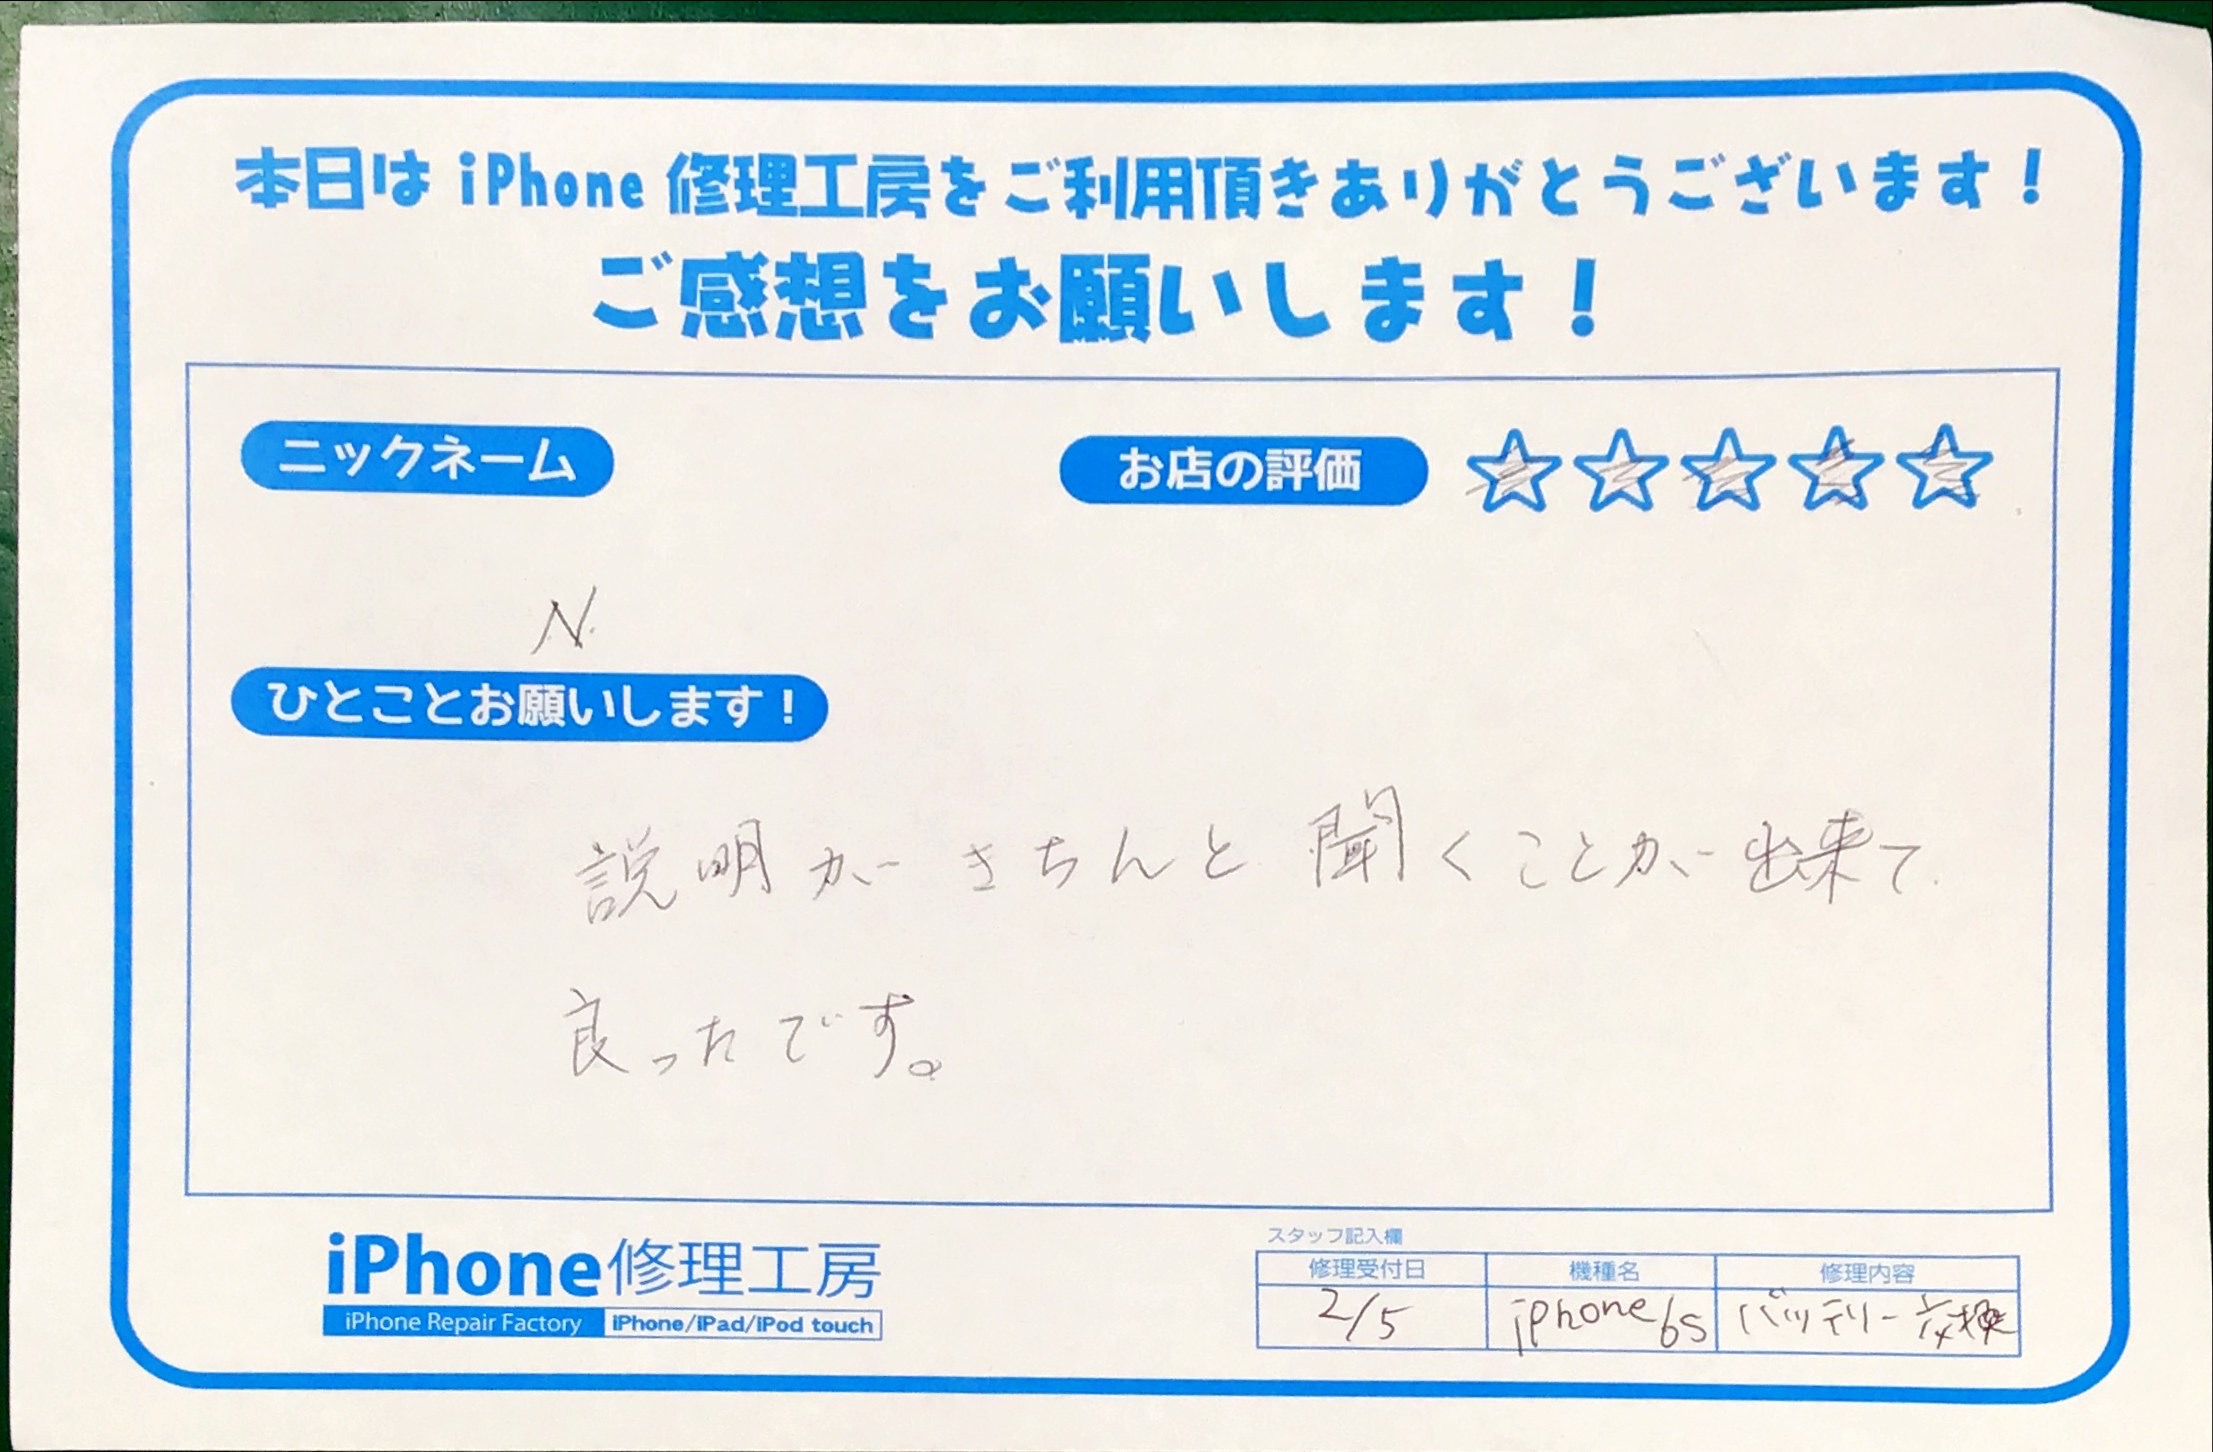 本日は iPhone 修理工房をご利用頂きありがとうございます！
ご感想をお願いします！
ニックネーム
お店の評価
N.
ひとことお願いします！
説明がきちんと聞くことが出来て
良ったです。
iPhone修理工房
iPhone Repair Factory iPhone/iPad/iPod touch
スタッフ記入欄
修理受付日 機種名 修理内容
2/5 iphone6s バッテリー交換